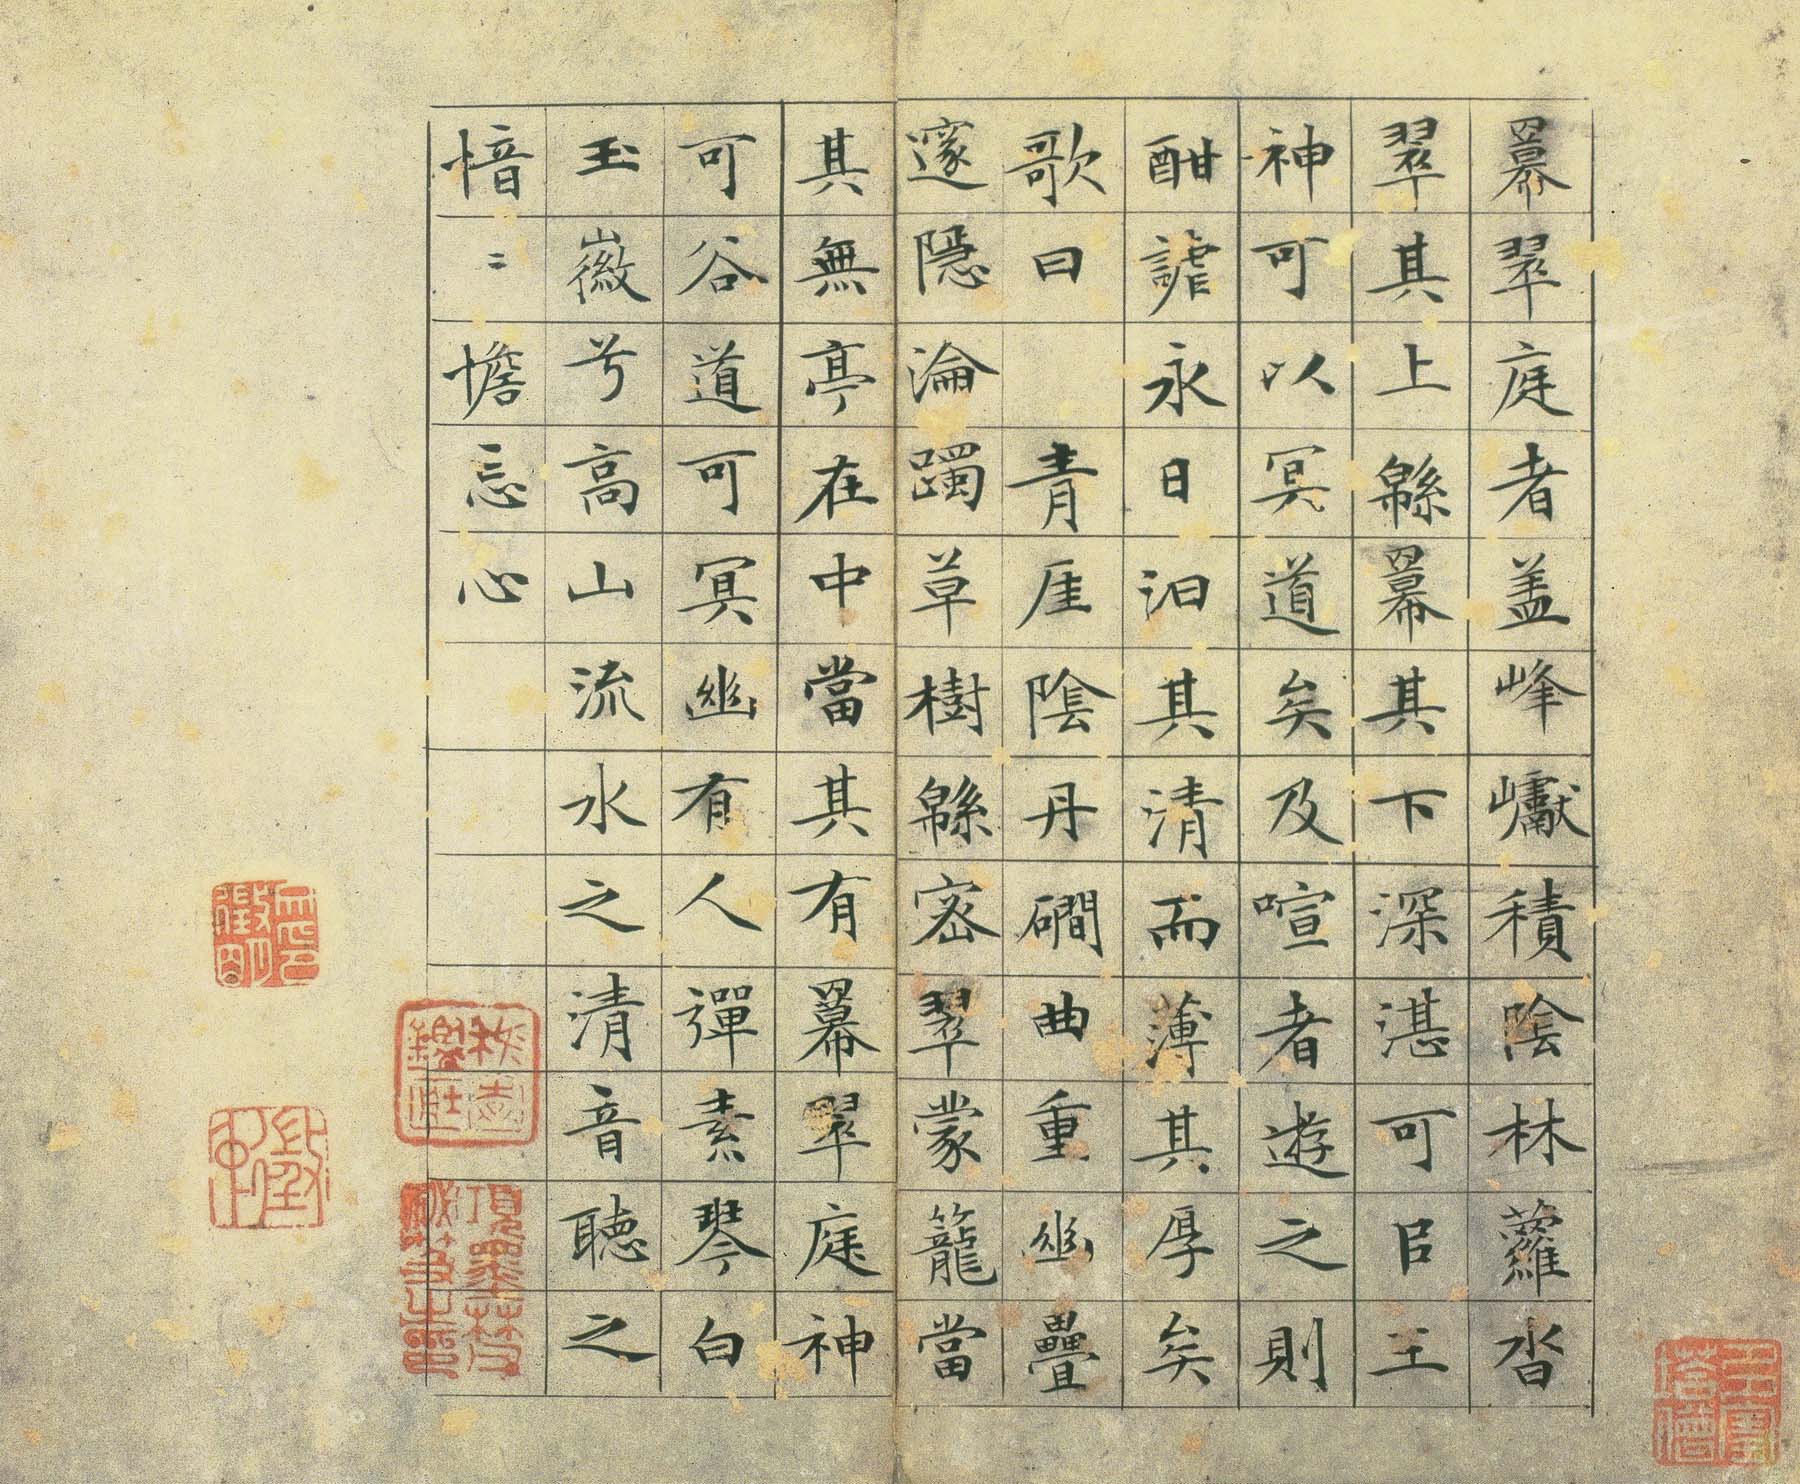 冪翠庭者蓋峰巘積陰林蘿沓
翠其上緜冪其下深湛可㠯王
神可以冥道矣及喧者遊之則
酣謔永日汩其清而薄其厚矣
歌曰　青厓陰丹磵曲重幽疊
邃隱淪躅草樹緜密翠蒙籠當
其無亭在中當其有冪翠庭神
可谷道可冥幽有人彈素琴白
玉徽兮高山流水之清音聽之
愔〻憺忘心
項墨林父秘笈之印